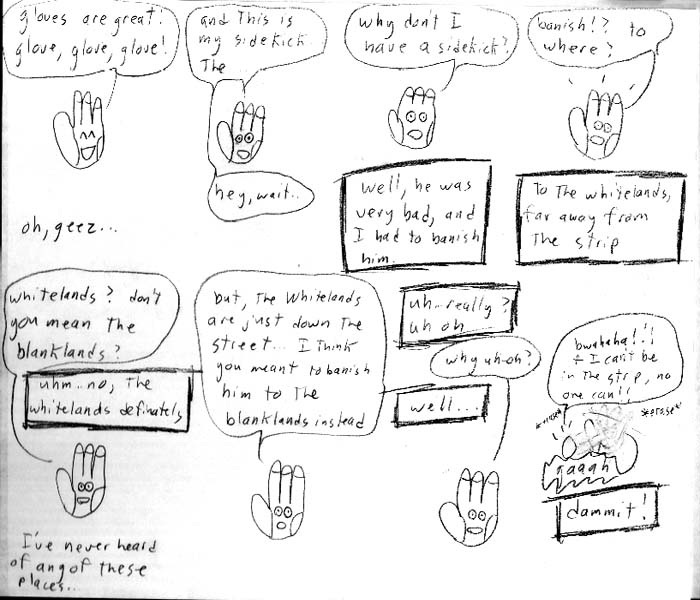 gloves are great!
glove, glove, glove!
and This is
my sidekick
The
hey, wait...
oh, geez...
why don't I
have a sidekick?
well, he was
very bad, and
I had to banish
him.
banish!? to
where?
To The whitelands,
far away from
The strip
whitelands? don't
you mean The
blanklands?
uhm... no, The
whitelands definately
I've never heard
of any of these
places...
but, The Whitelands
are just down The
street... I Think
you meant to banish
him to The
blanklands instead
uh.. really?
uh oh...
why uh-oh?
well...
bwahaha!!!
if I can't be
in The strip, no
one can!!
*erase*
*erase*
gaagh
dammit!